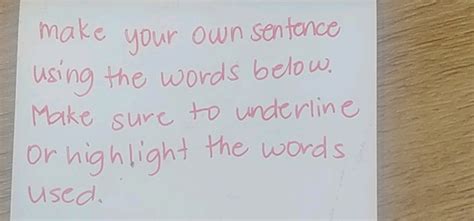 make your own sentence
using the words below.
Make sure to underline
or highlight the words
used.